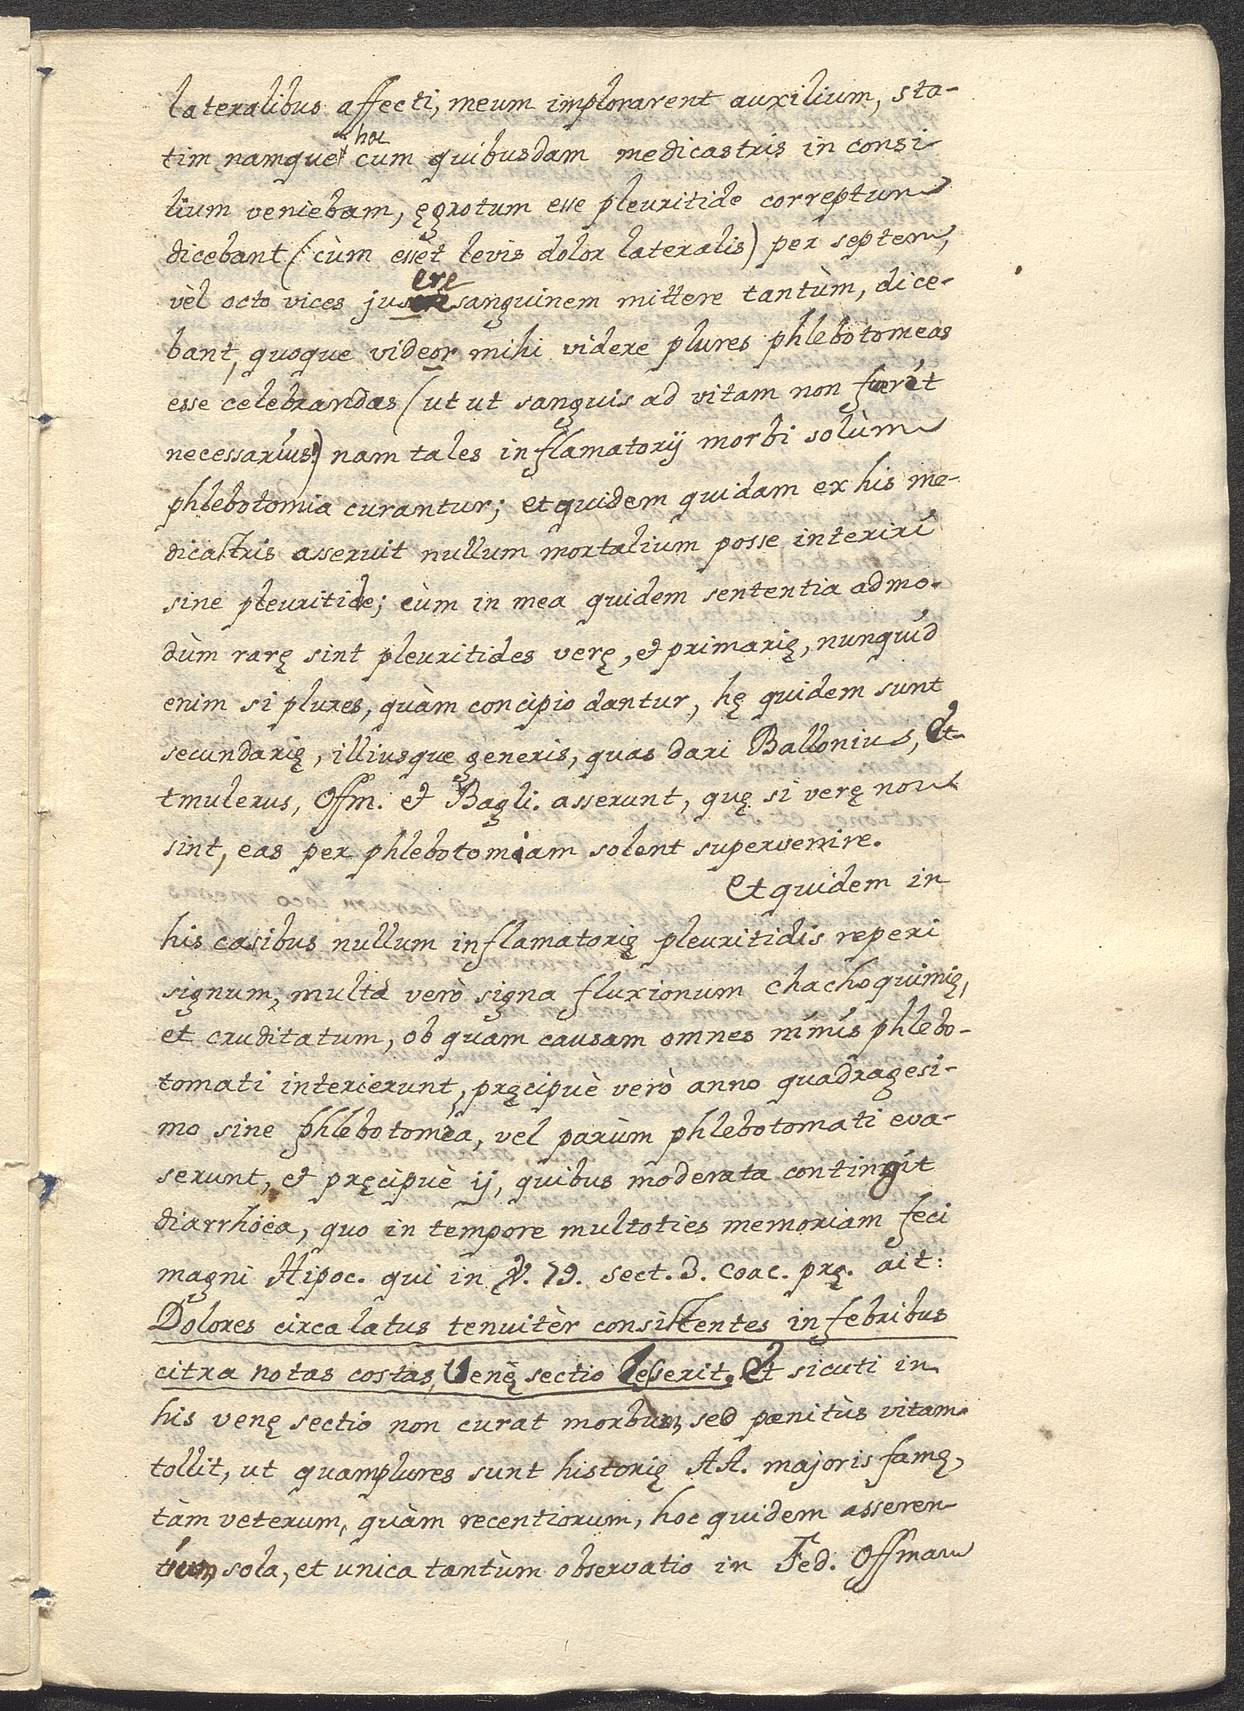 lateralibus affecti, meum implorarent auxilium, sta-
tim namque hoc cum quibusdam medicastris in consi-
lium veniebam, ęgrotum esse pleuritide correptum
dicebant (cùm esset levis dolor lateralis) per septem,
vèl octo vices jusere sanguinem mittere tantùm, dice-
bant, quoque videor mihi videre plures phlebotomeas
esse celebrandas (ut ut sanguis ad vitam non fuerit
necessarius) nam tales inflamatorij morbi solùm
phlebotomia curantur; et quidem quidam ex his me-
dicastris asseruit nullum mortalium posse interiri
sine pleuritide; cùm in mea quidem sententia admo-
dùm rarę sint pleuritides verę, et primarię, nunquid
enim si plures, quàm concipio dantur, hę quidem sunt
secundarię, illiusque generis, quas dari Ballonius, Et-
tmulerus, Offm. et Bagli. asserunt, quę si verę non
sint, eas per phlebotomiam solent supervenire.
Et quidem in
his casibus nullum inflamatorię pleuritidis reperi
signum, multa verò signa fluxionum chachoquimię,
et cruditatum, ob quam causam omnes nimis phlebo-
tomati interierunt, pręcipuè verò anno quadragesi-
mo sine phlebotomia, vel parùm phlebotomati eva-
serunt, et pręcipuè ij, quibus moderata contingit
diarrhöea, quo in tempore multoties memoriam feci
magni Hipoc. qui in V. 79. sect. 3. coac. prę. ait:
Dolores circa latus tenuitèr consistentes in febribus
citra notas costas, Venę sectio lęserit. Et sicuti in
his venę sectio non curat morbum, sed pœnitùs vitam
tollit, ut quamplures sunt historię AA. majoris famę,
tàm veterum, quàm recentiorum, hoc quidem asseren-
tium, sola, et unica tantùm observatio in Fed. Offman